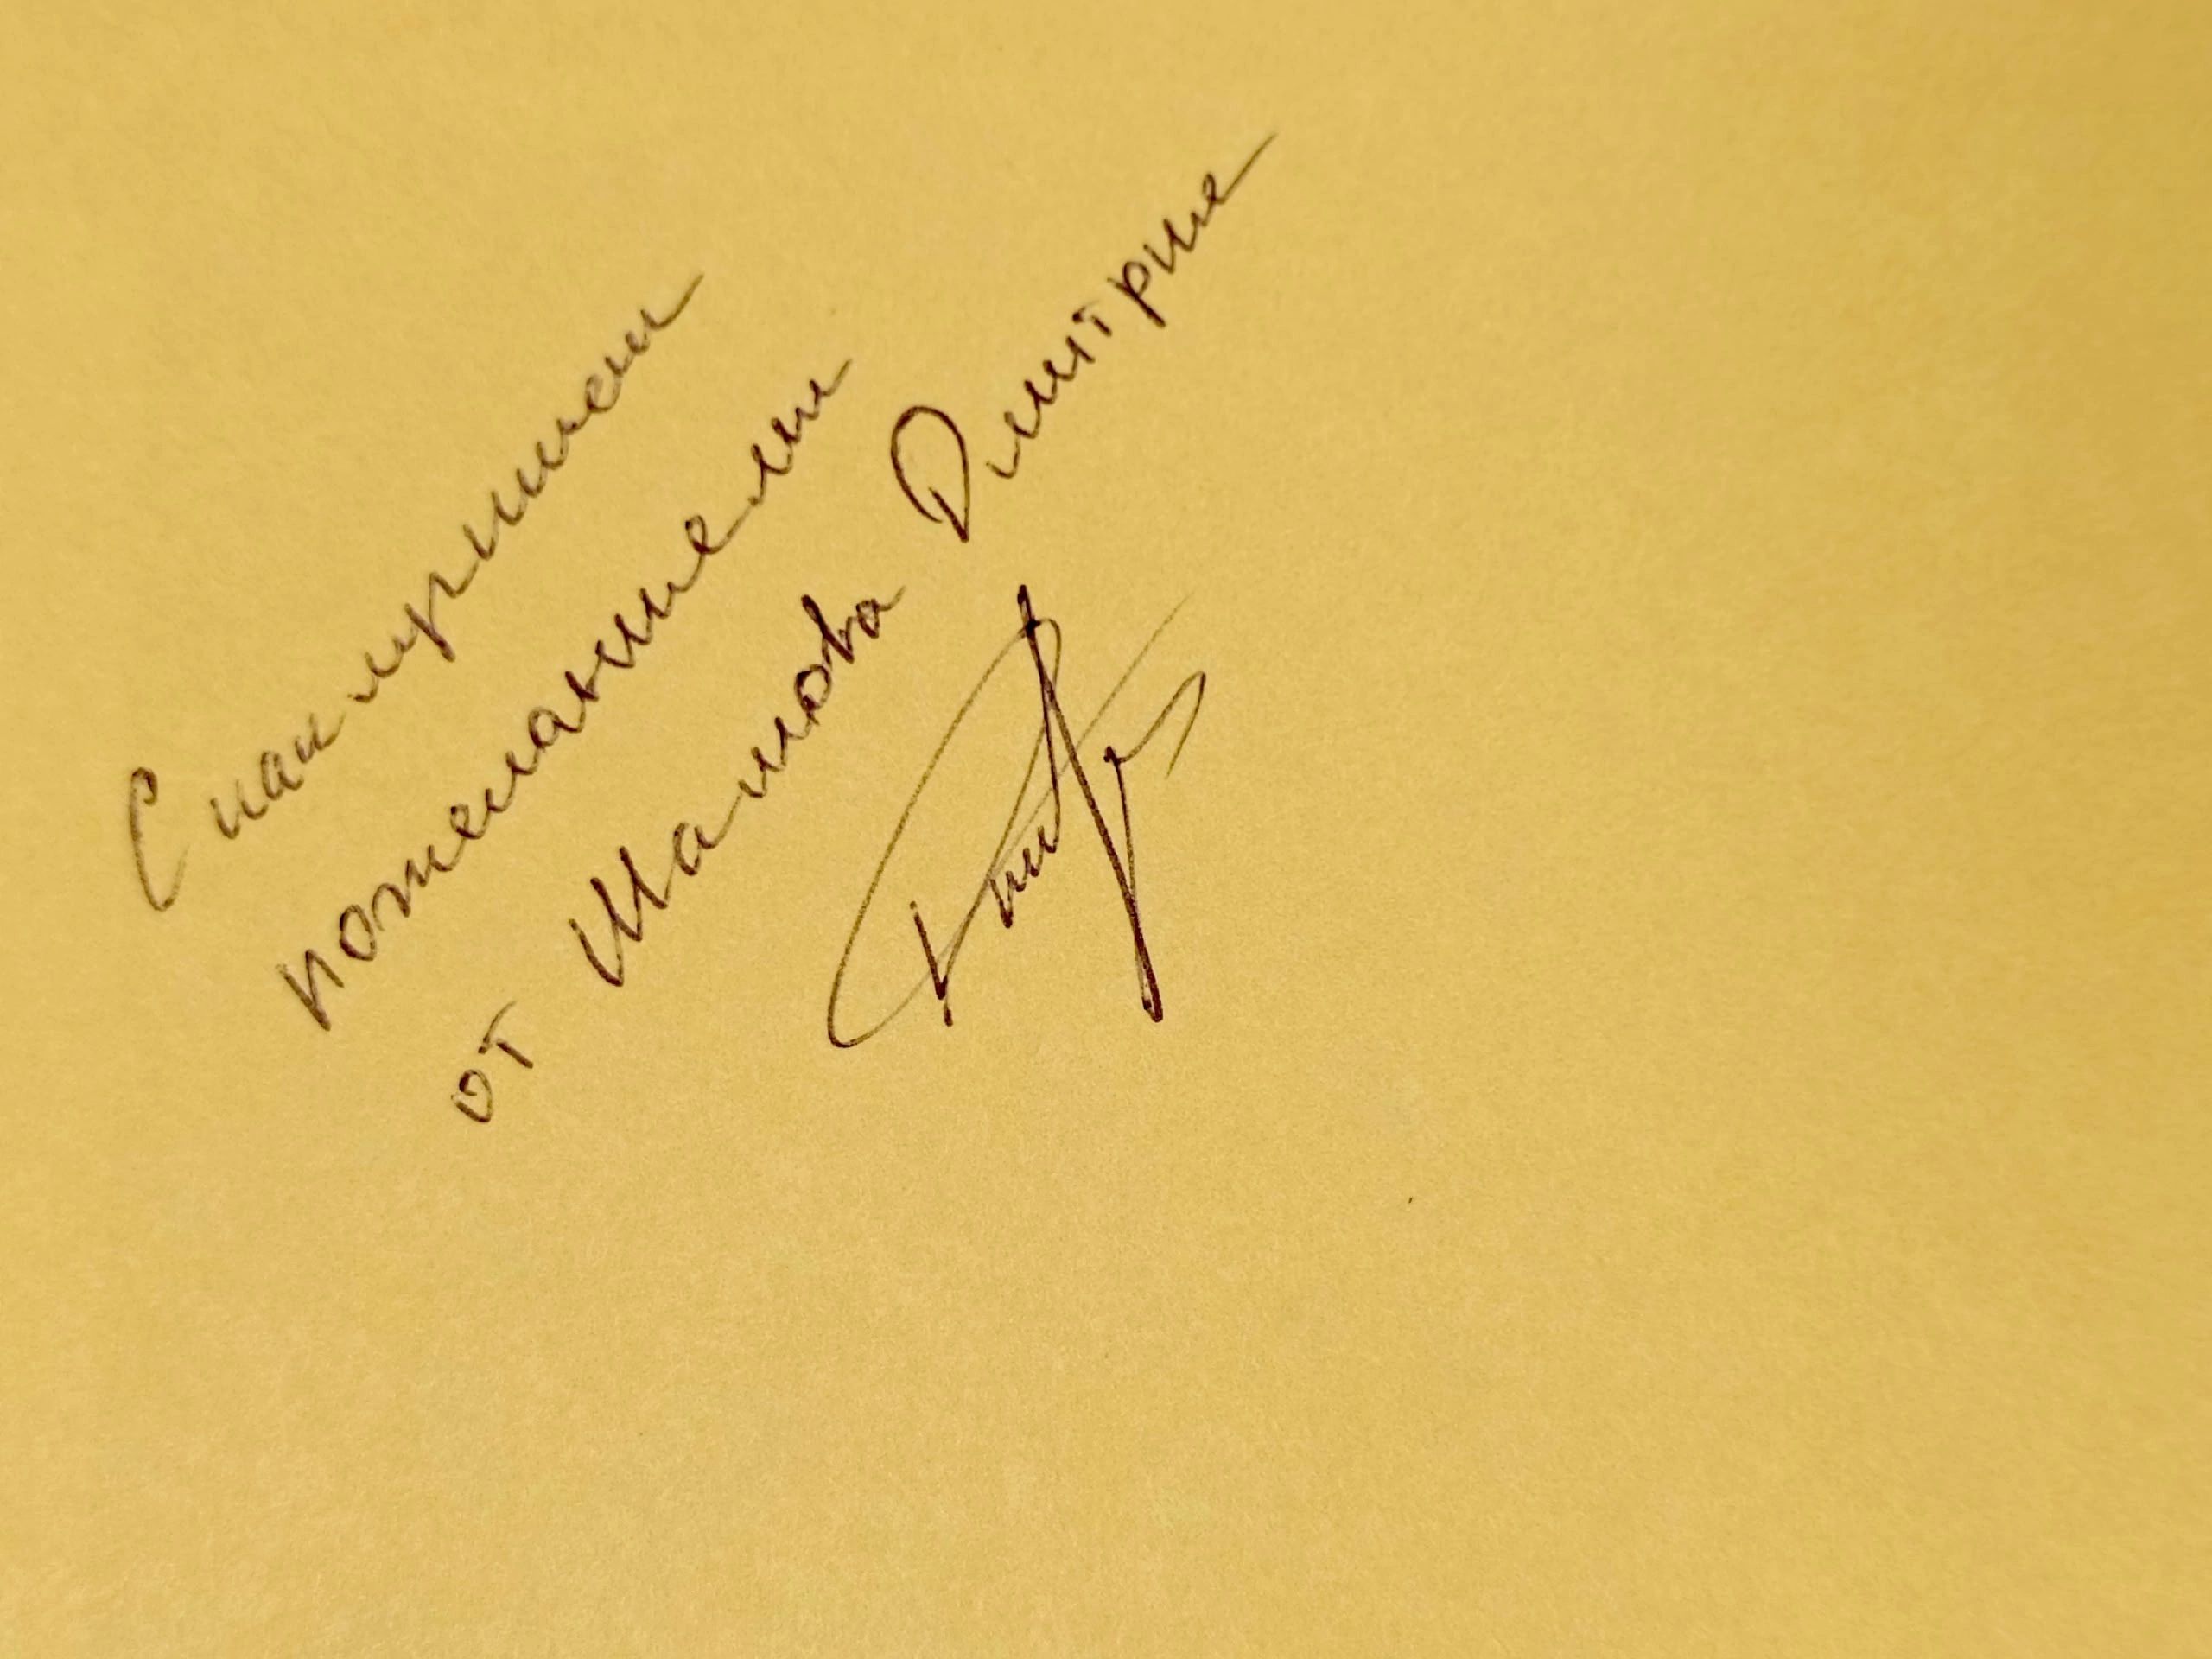 С наилучшими
пожеланиями
от Шамова Дмитрия